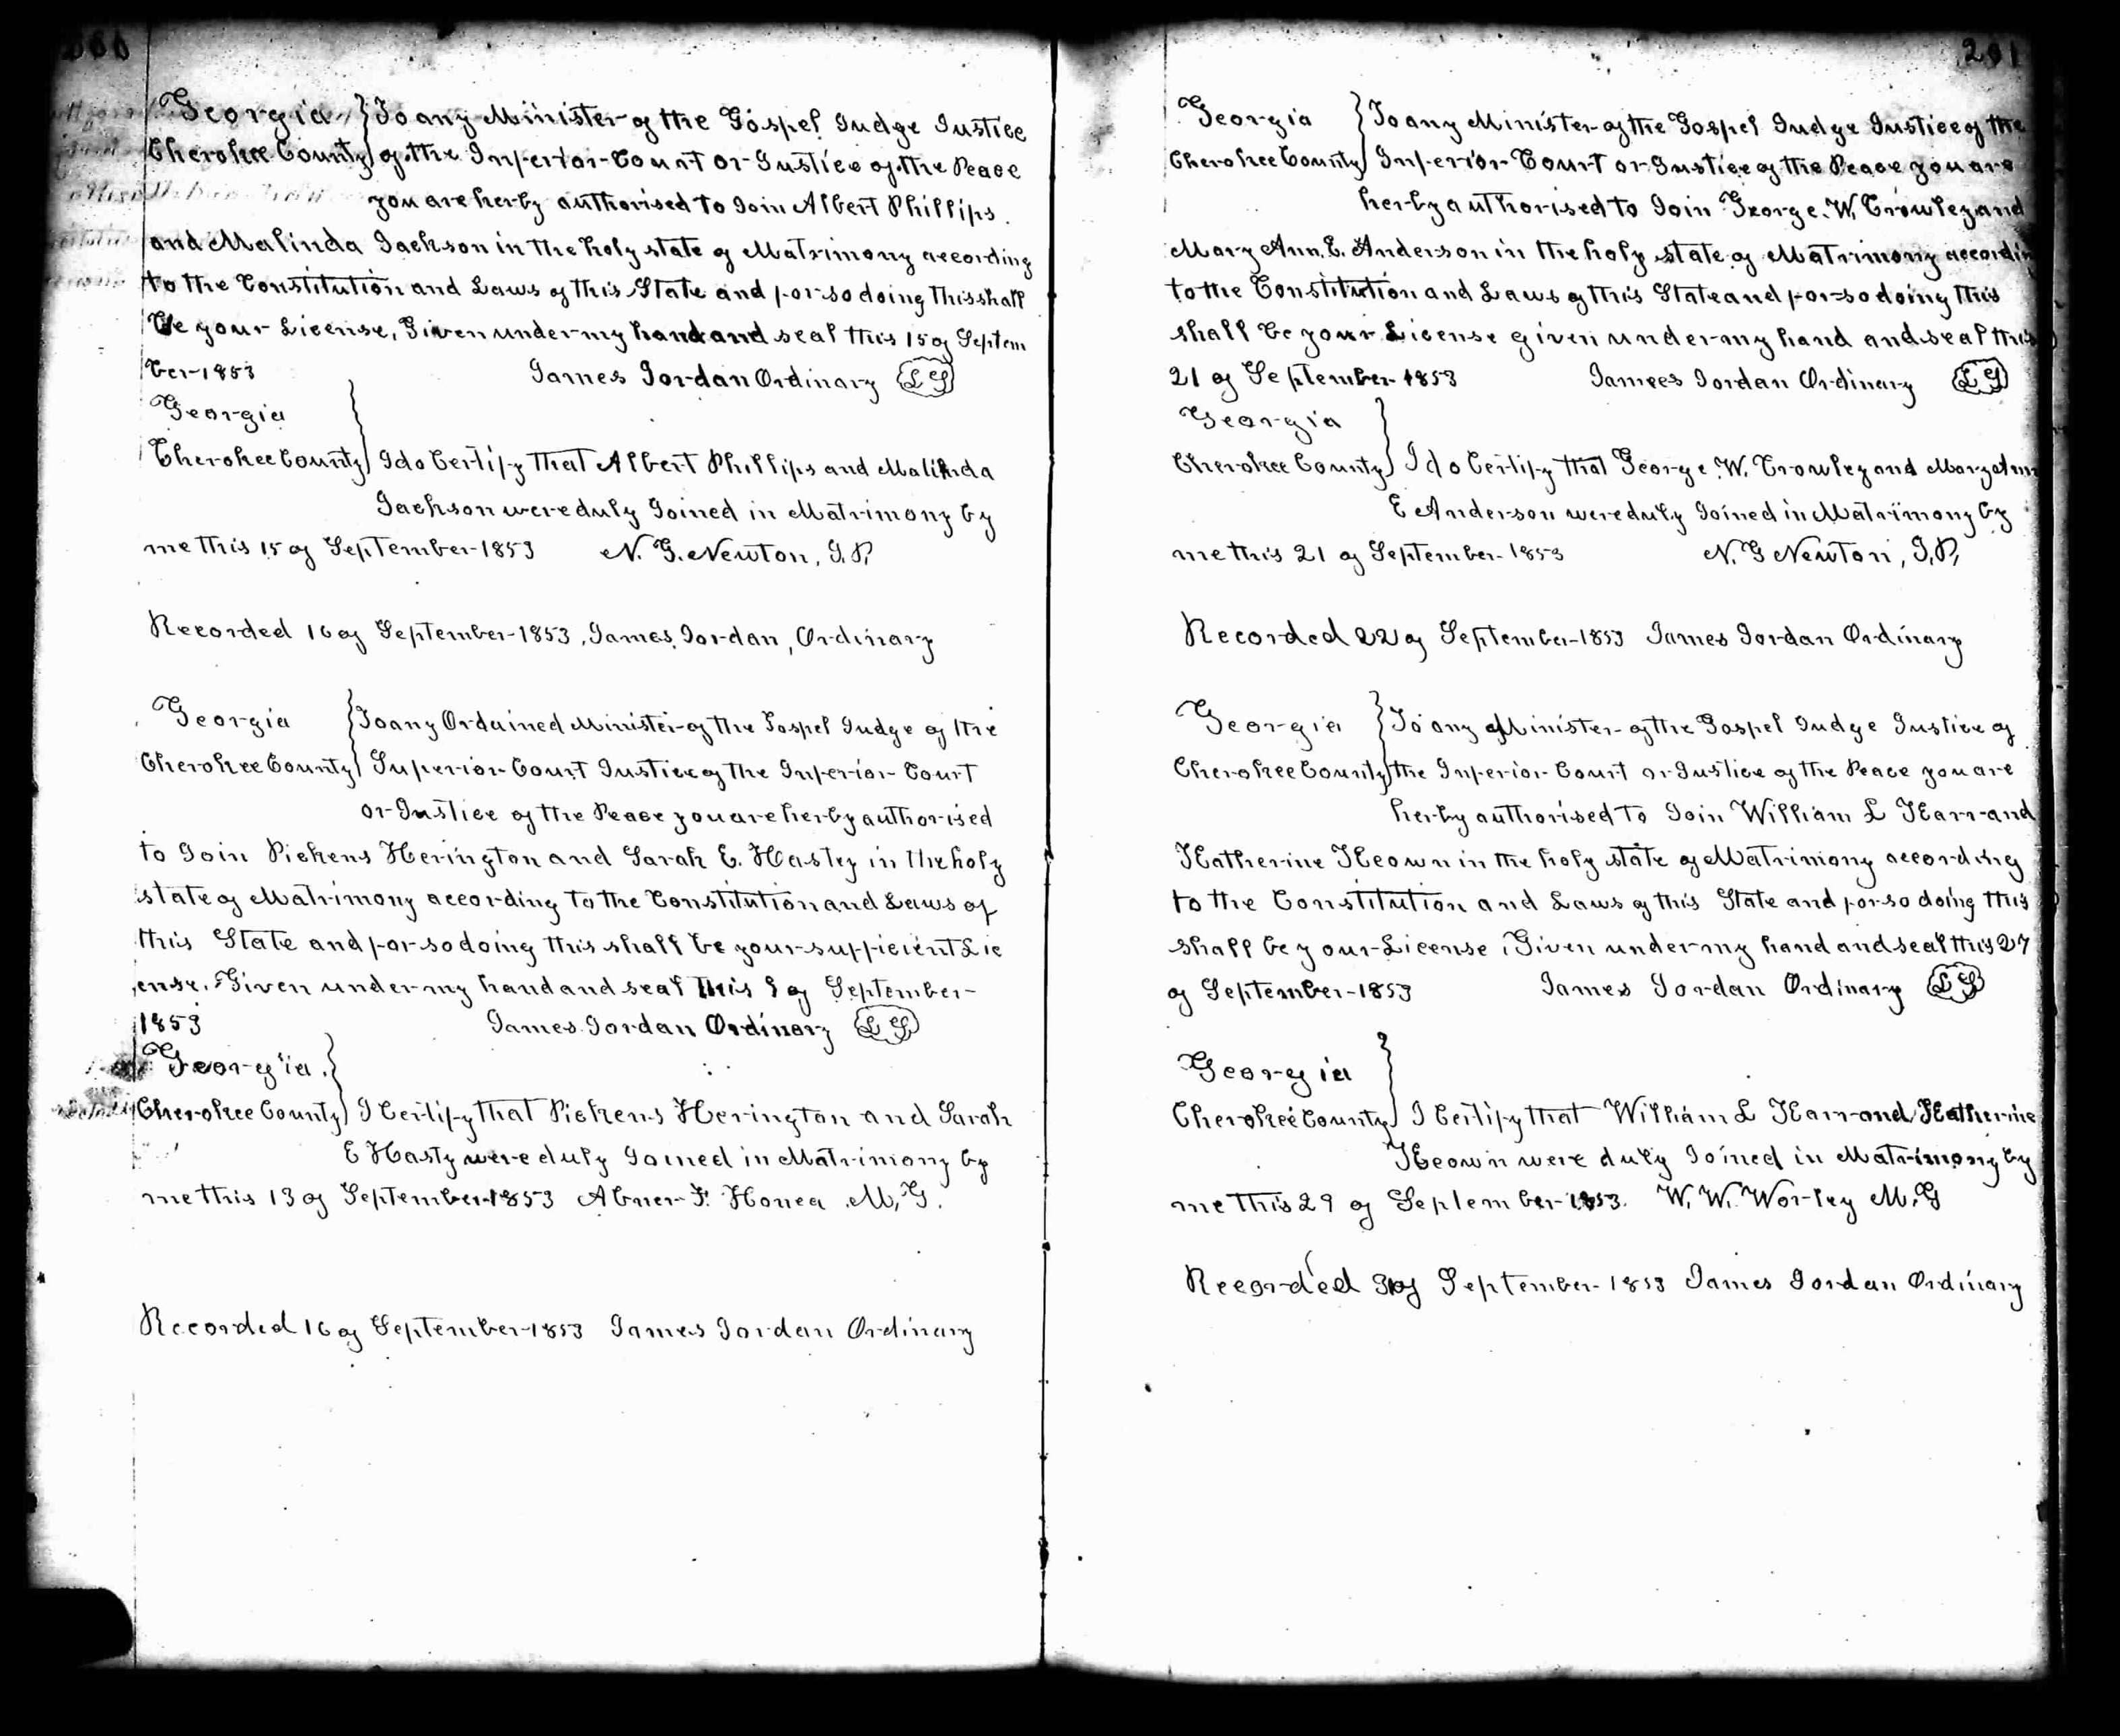 200
Georgia } To any Minister of the Gospel Judge Justice
Cherokee County } of the Inferior Court or Justice of the Peace
you are herby authorised to Join Albert Phillips
and Malinda Jackson in the holy state of Matrimony according
to the Constitution and Laws of this State and for so doing this shall
be your License, Given under my hand and seal this 15 of Septem
ber 1853 James Jordan Ordinary LS
Georgia }
Cherokee County } I do Certify that Albert Phillips and Malinda
Jackson were duly Joined in Matrimony by
me this 15 of September 1853 N. G. Newton, J.P,
Recorded 16 of September 1853, James Jordan, Ordinary
Georgia } To any Ordained Minister of the Gospel Judge of the
Cherokee County } Superior Court Justice of the Inferior Court
or Justice of the Peace you are herby authorised
to Join Pickens Herington and Sarah E. Hastey in the holy
state of Matrimony according to the Constitution and Laws of
this State and for so doing this shall be your sufficient Lic
ense. Given under my hand and seal this 9 of September
1853 James Jordan Ordinary LS
Georgia }
Cherokee County } I Certify that Pickens Herington and Sarah
E Hasty were duly Joined in Matrimony by
me this 13 of September 1853 Abner F. Honea M,G.
Recorded 16 of September 1853 James Jordan Ordinary
201
Georgia } To any Minister of the Gospel Judge Justice of the
Cherokee County } Inferior Court or Justice of the Peace you are
herby authorised to Join George. W. Crowley and
Mary Ann. E. Anderson in the holy state of Matrimony accordin
to the Constitution and Laws of this State and for so doing this
shall be your License given under my hand and seal this
21 of September 1853 Jamees Jordan Ordinary LS
Georgia }
Cherokee County } I do Certify that George. W. Crowley and Mary Ann
E Anderson were duly Joined in Matrimony by
me this 21 of September 1853 N. G Newton, J,P,
Recorded 22 of September 1853 James Jordan Ordinary
Georgia } To any Minister of the Gospel Judge Justice of
Cherokee County } the Inferior Court or Justice of the Peace you are
herby authorised to Join William L Karr and
Katherine Keown in the holy state of Matrimony according
to the Constitution and Laws of this State and for so doing this
shall be your License, Given under my hand and seal this 27
of September 1853 James Jordan Ordinary LS
Georgia }
Cherokee County } I Certify that William L Karr and Katherine
Keown were duly Joined in Matrimony by
me this 29 of September 1853. W. W. Worley M,G
Recorded of September 1853 James Jordan Ordinary